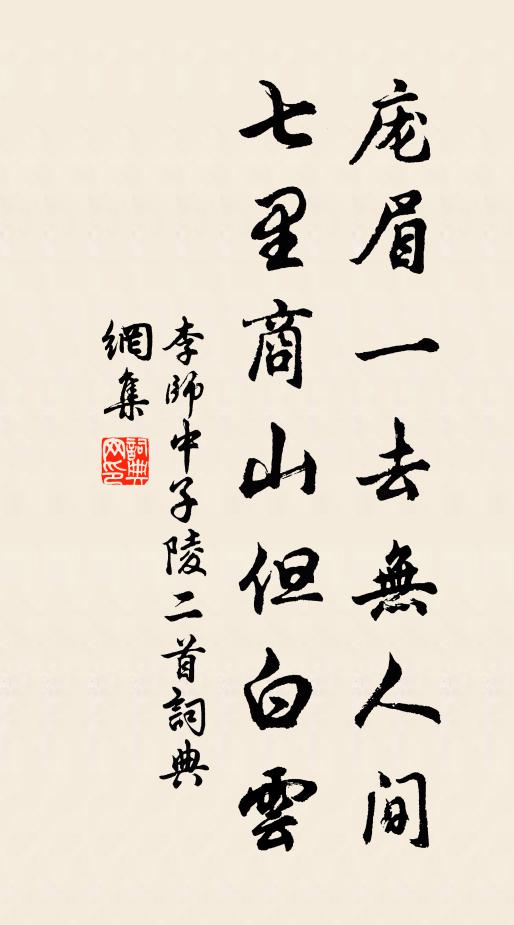 庬眉一去無人間
七里商山但白雲
李師中子陵二首詞典
網集
詞典
网印